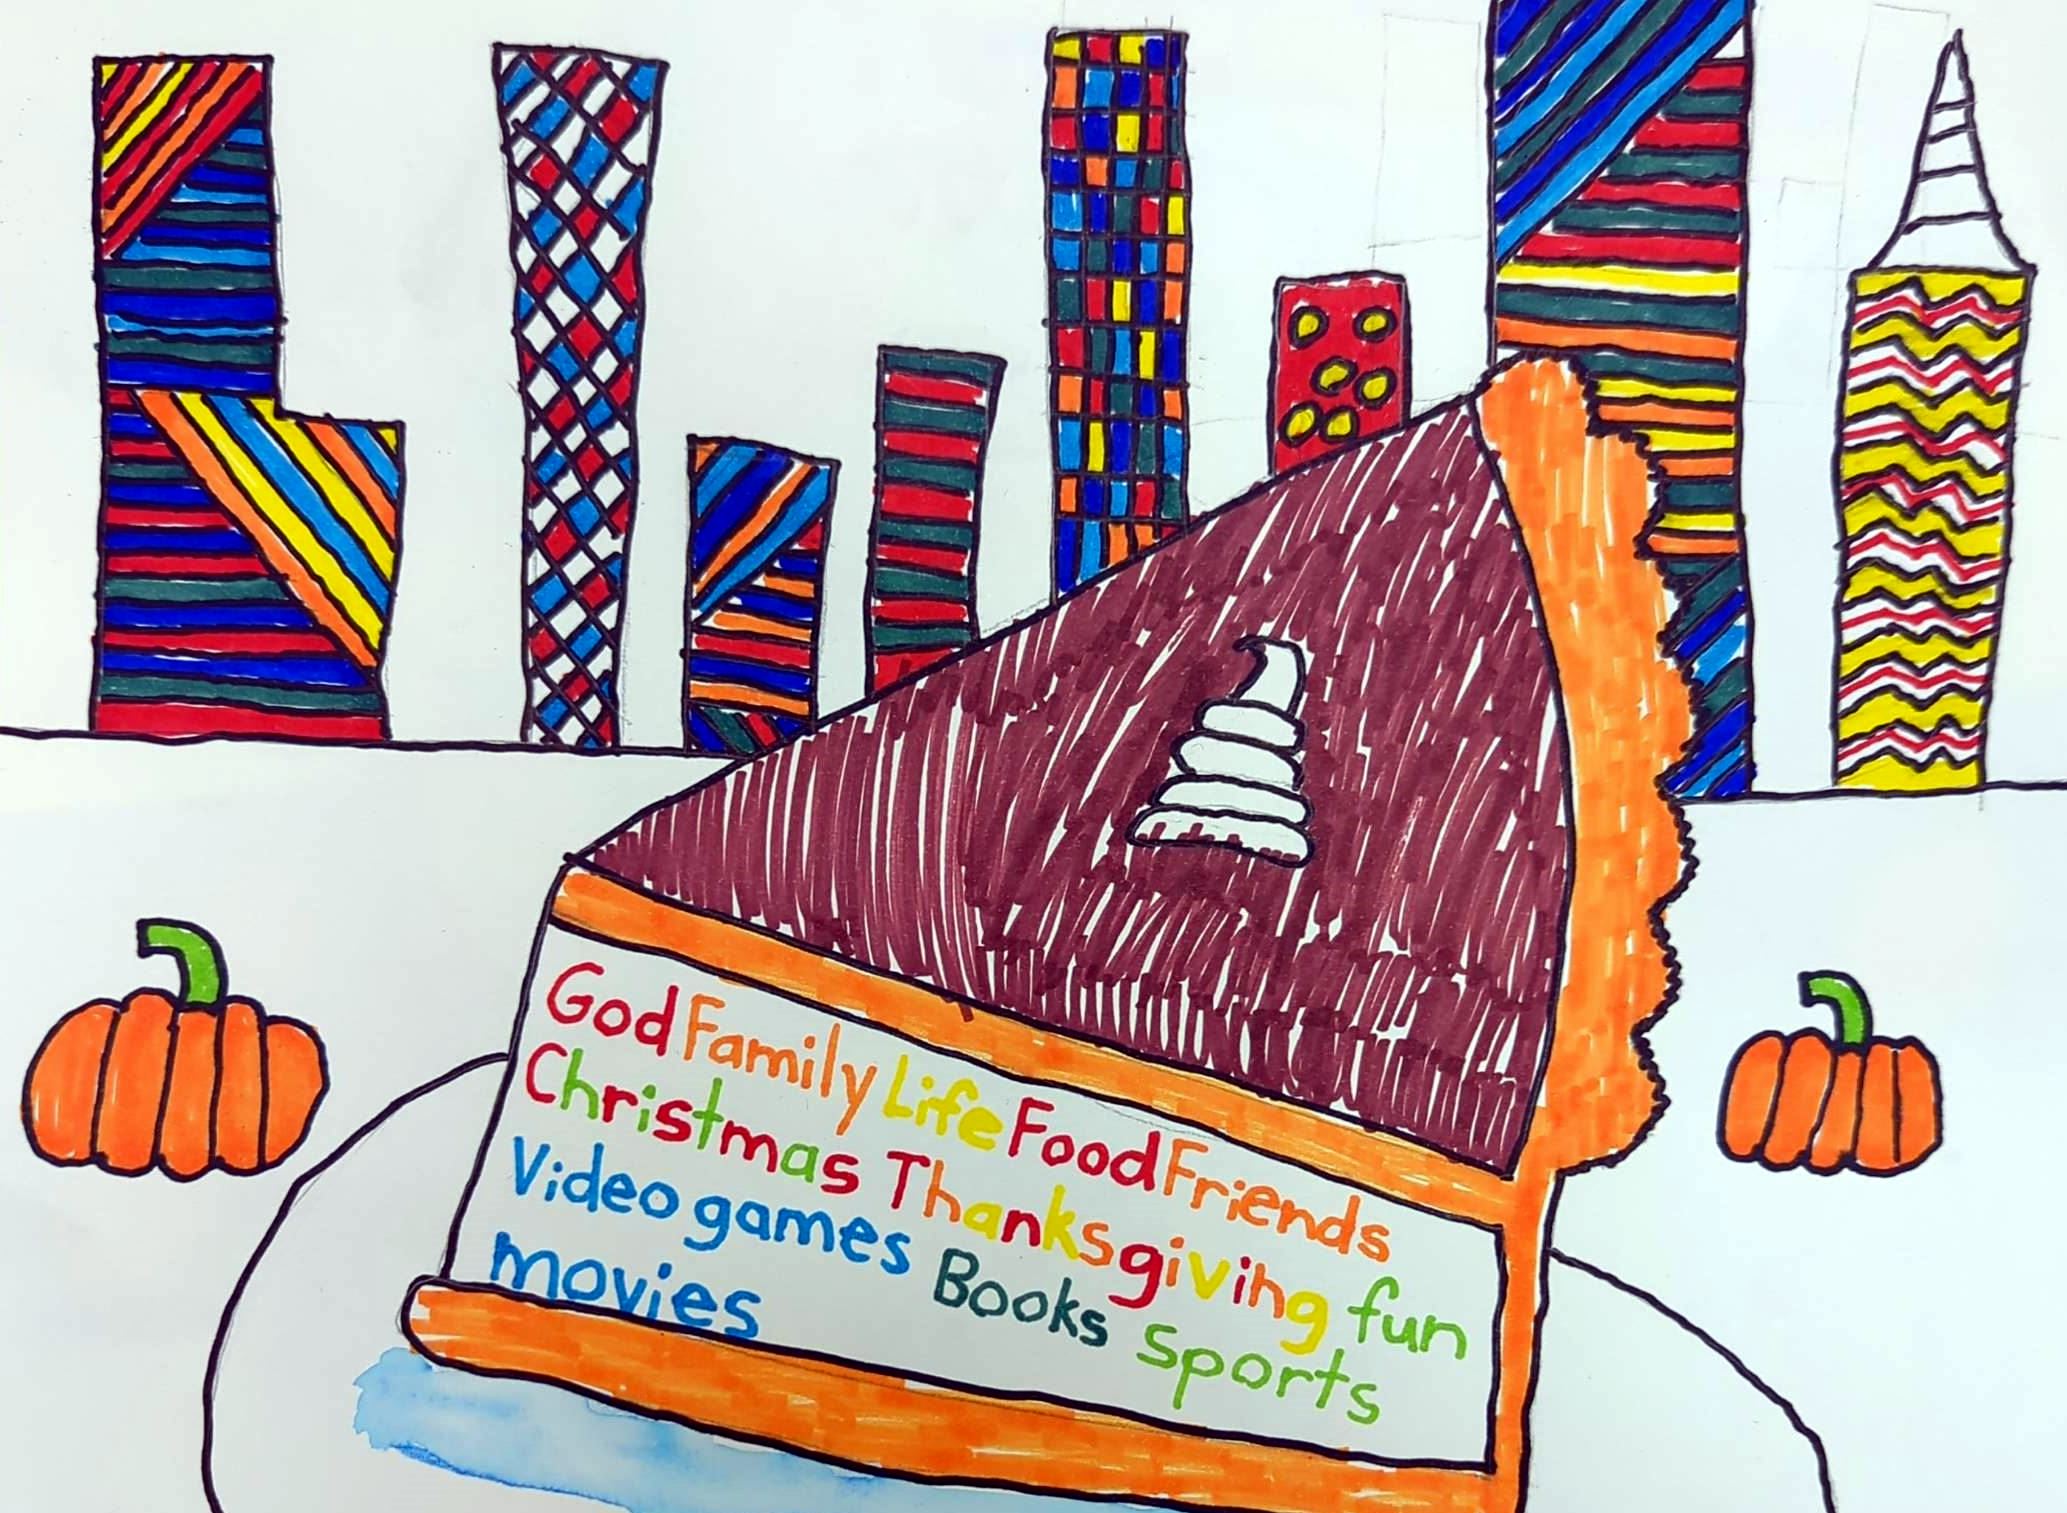 God Family Life Food Friends
Christmas Thanksgiving fun
Video games Books sports
movies